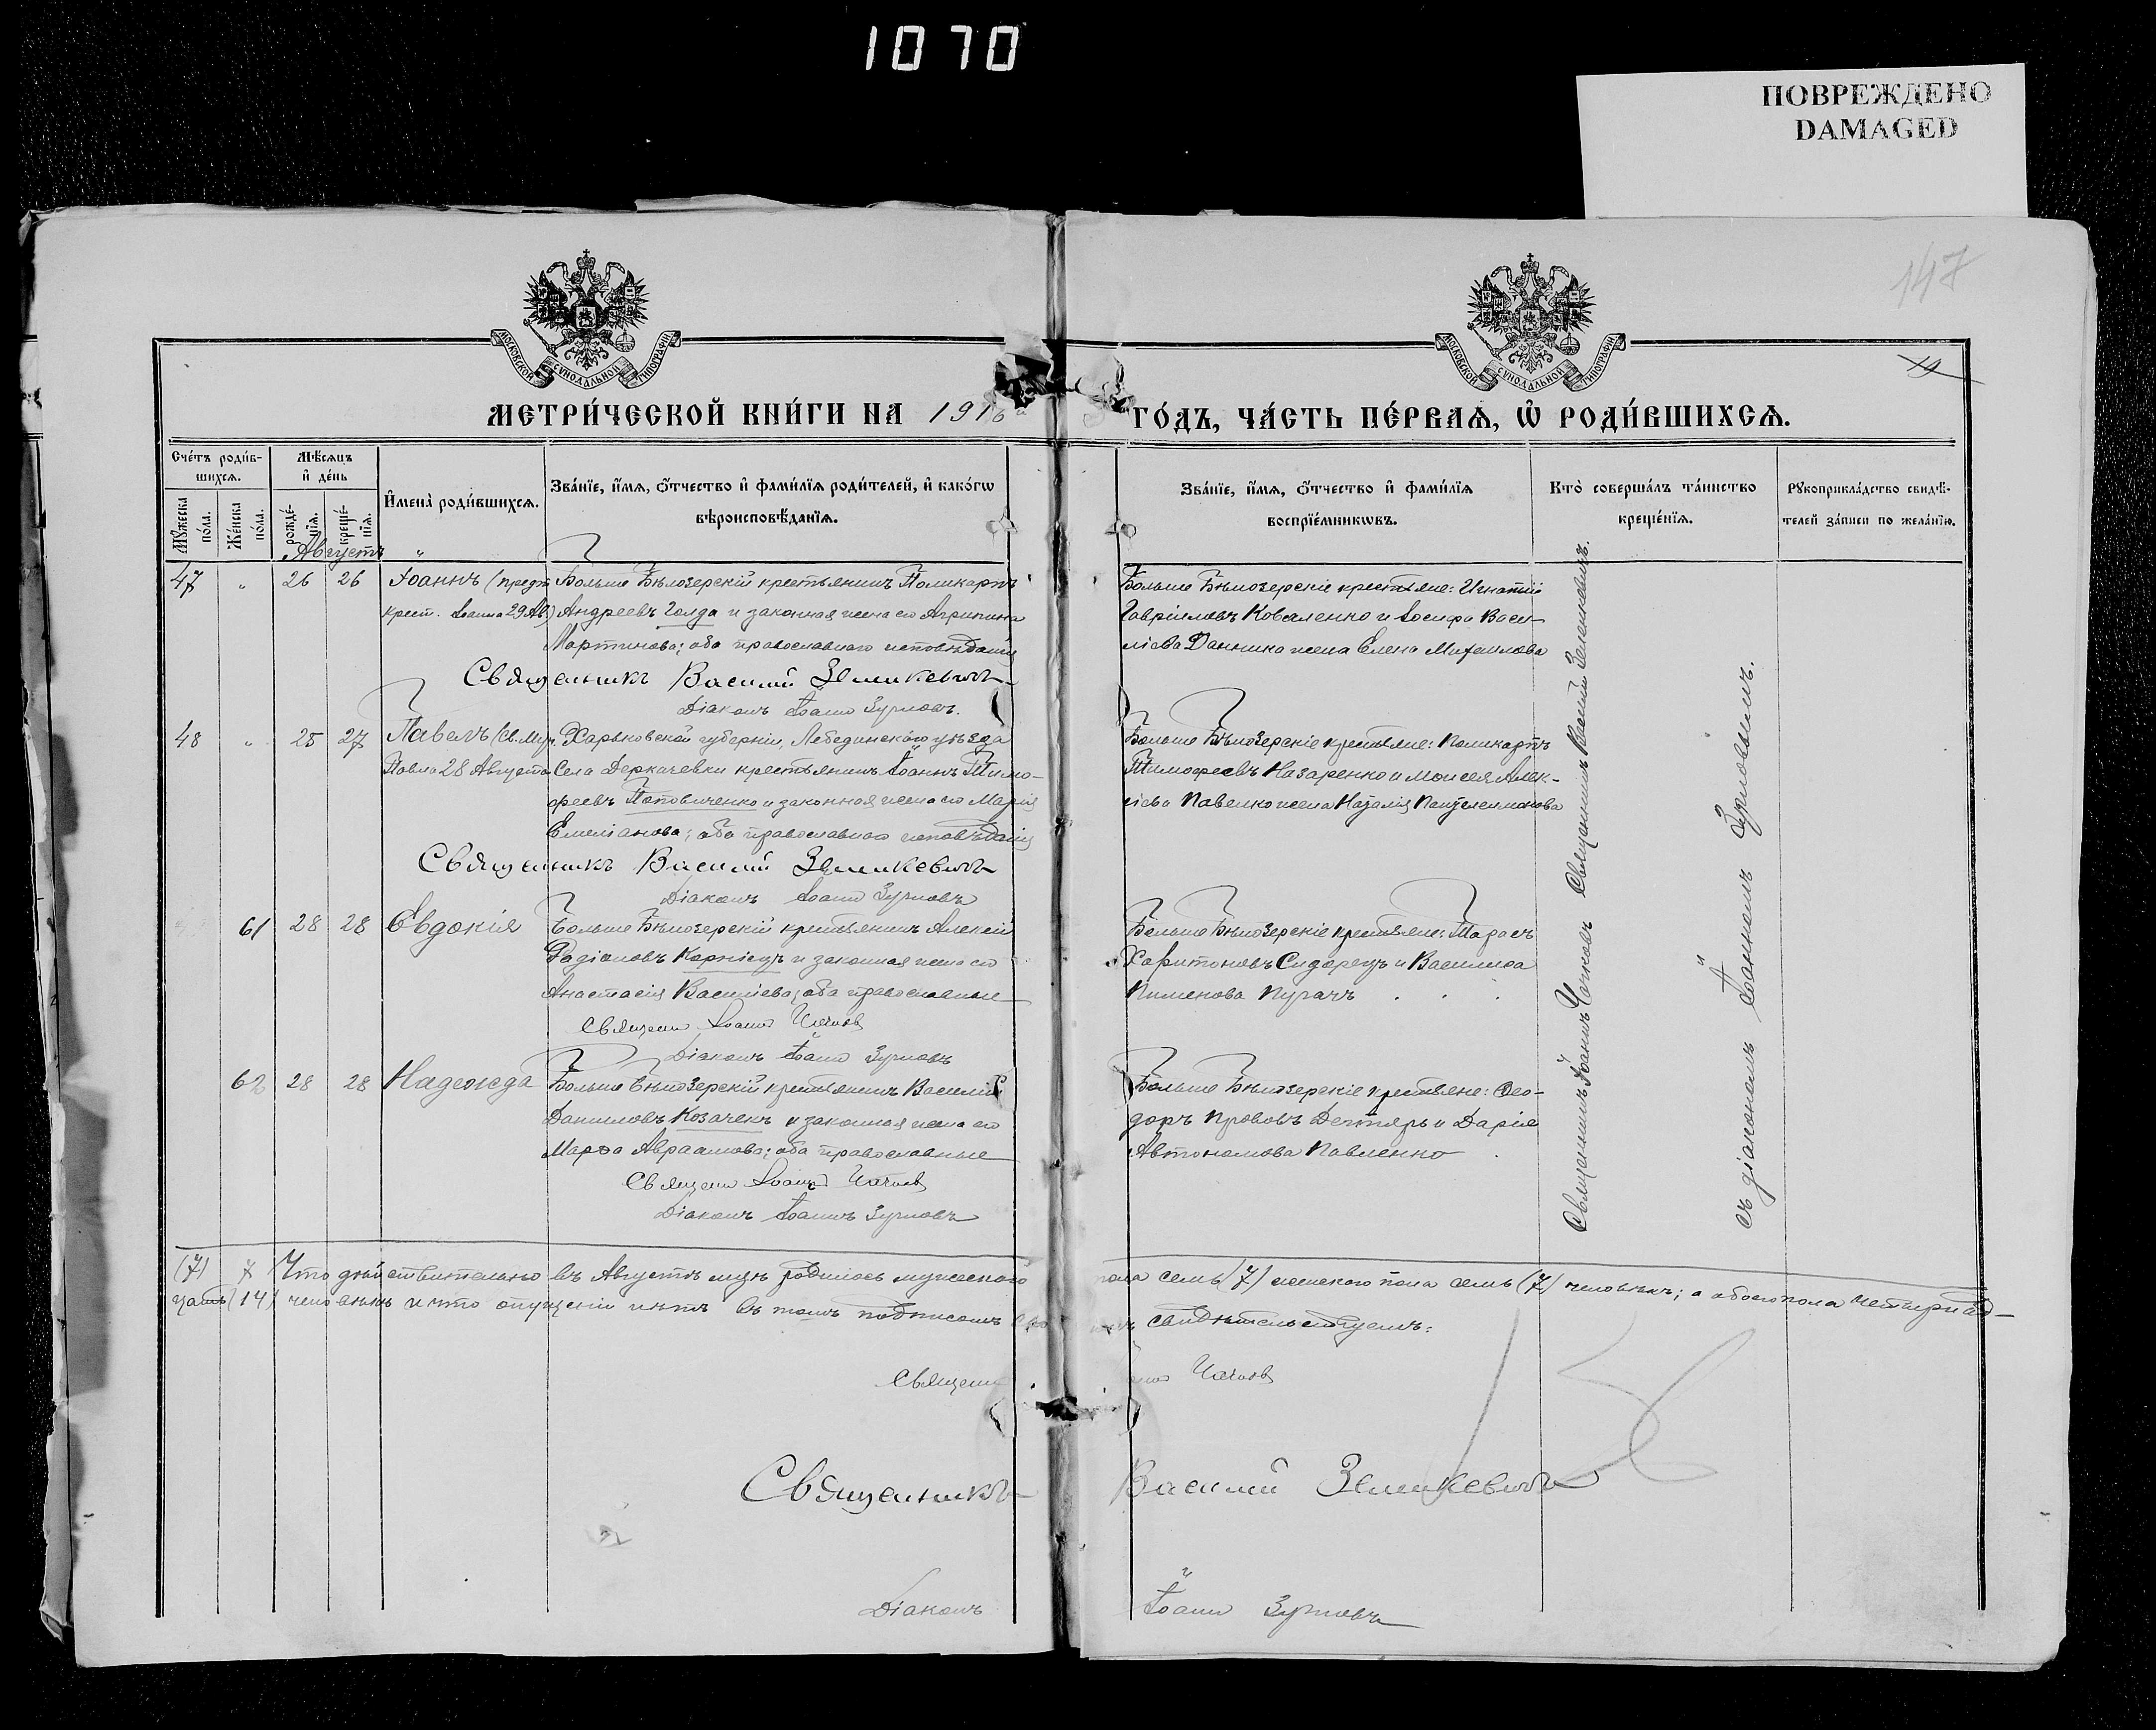 1070
ПОВРЕЖДЕНО
DAMAGED
147
МОСКОВСКОЙ СѴНОДАЛЬНОЙ ТИПОГРАФІИ
МОСКОВСКОЙ СѴНОДАЛЬНОЙ ТИПОГРАФІИ
МЕТРИ́ЧЕСКОЙ КНИ́ГИ НА 1916
ГО́ДЪ, ЧА́СТЬ ПЕ́РВАѦ, Ѿ РОДИ́ВШИХСѦ.
Сче́тъ роди́вшихсѧ.
Мꙋ́жеска по́ла.
Же́нска по́ла.
Мѣ́сѧцъ и҆ де́нь
рожде́нїѧ.
креще́нїѧ.
И҆мена̀ роди́вшихсѧ.
Зва́нїе, и҆́мѧ, ѻ҆́тчество и҆ фами́лїѧ роди́телей, и҆ како́гѡ
вѣроисповѣ́данїѧ.
Зва́нїе, и҆́мѧ, ѻ҆́тчество и҆ фами́лїѧ
воспрїе́мникѡвъ.
Кто̀ соверша́лъ та́инство
креще́нїѧ.
Рꙋкоприкла́дство свидѣ́-
телей за́писи по жела́нїю.
Августъ "
47 " 26 26 Іоаннъ (предт. Больше Бѣлозерскій крестьянинъ Поликарпъ
крест. Іоанна 29 Ав.) Андреевъ Голда и законная жена его Агрипина
Мартинова; оба православнаго исповѣданія
Священникъ Василій Зелинкевичъ
Діаконъ Іоаннъ Зурновъ.
Больше Бѣлозерскіе крестьяне: Игнатій
Гавріиловъ Коваленко и Іосифа Васи-
ліева Данника жена Елена Михаилова
48 " 25 27 Павелъ (Св. Муч. Харьковской губерніи, Лебединскаго уѣзда
Павла 28 Августа Села Деркачевки крестьянинъ Іоаннъ Тимо-
феевъ Поповиченко и законная жена его Марія
Емеліанова; оба православнаго исповѣданія
Священникъ Василій Зелинкевичъ
Діаконъ Іоаннъ Зурновъ
Больше Бѣлозерскіе крестьяне: Поликарпъ
Тимофеевъ Назаренко и Моисея Алек-
сіева Павелко жена Наталія Пантелеимонова
61 28 28 Евдокія Больше Бѣлозерскій крестьянинъ Алексій
Радіоновъ Корніецъ и законная жена его
Анастасія Василіева; оба православные
Священ Іоаннъ Чачковъ
Діаконъ Іоаннъ Зурновъ
Больше Бѣлозерскіе крестьяне: Тарасъ
Харитоновъ Сидорецъ и Василиса
Пименова Пугачъ . . .
62 28 28 Надежда Больше Бѣлозерскій крестьянинъ Василій
Даниловъ Козаченъ и законная жена его
Марѳа Авраамова; оба православные
Священ Іоаннъ Чачковъ
Діаконъ Іоаннъ Зурновъ
Больше Бѣлозерскіе крестьяне: Ѳео-
доръ Прововъ Дехтярь и Дарія
Автономова Павленко .
Священникъ Іоаннъ Чачковъ Священникъ Василій Зелинкевичъ.
съ діакономъ Іоанномъ Зурновымъ.
(7) 7 Что дѣйствительно въ Августѣ мцѣ родилось мужескаго пола семь (7) женскаго пола семь (7) человѣкъ; а обоего пола четырнад-
цать (14) человѣкъ и что опущеній нѣтъ въ томъ подписомъ свидѣтельствуемъ:
Священ Чачковъ
Священникъ Василій Зелинкевичъ
Діаконъ Іоаннъ Зурновъ